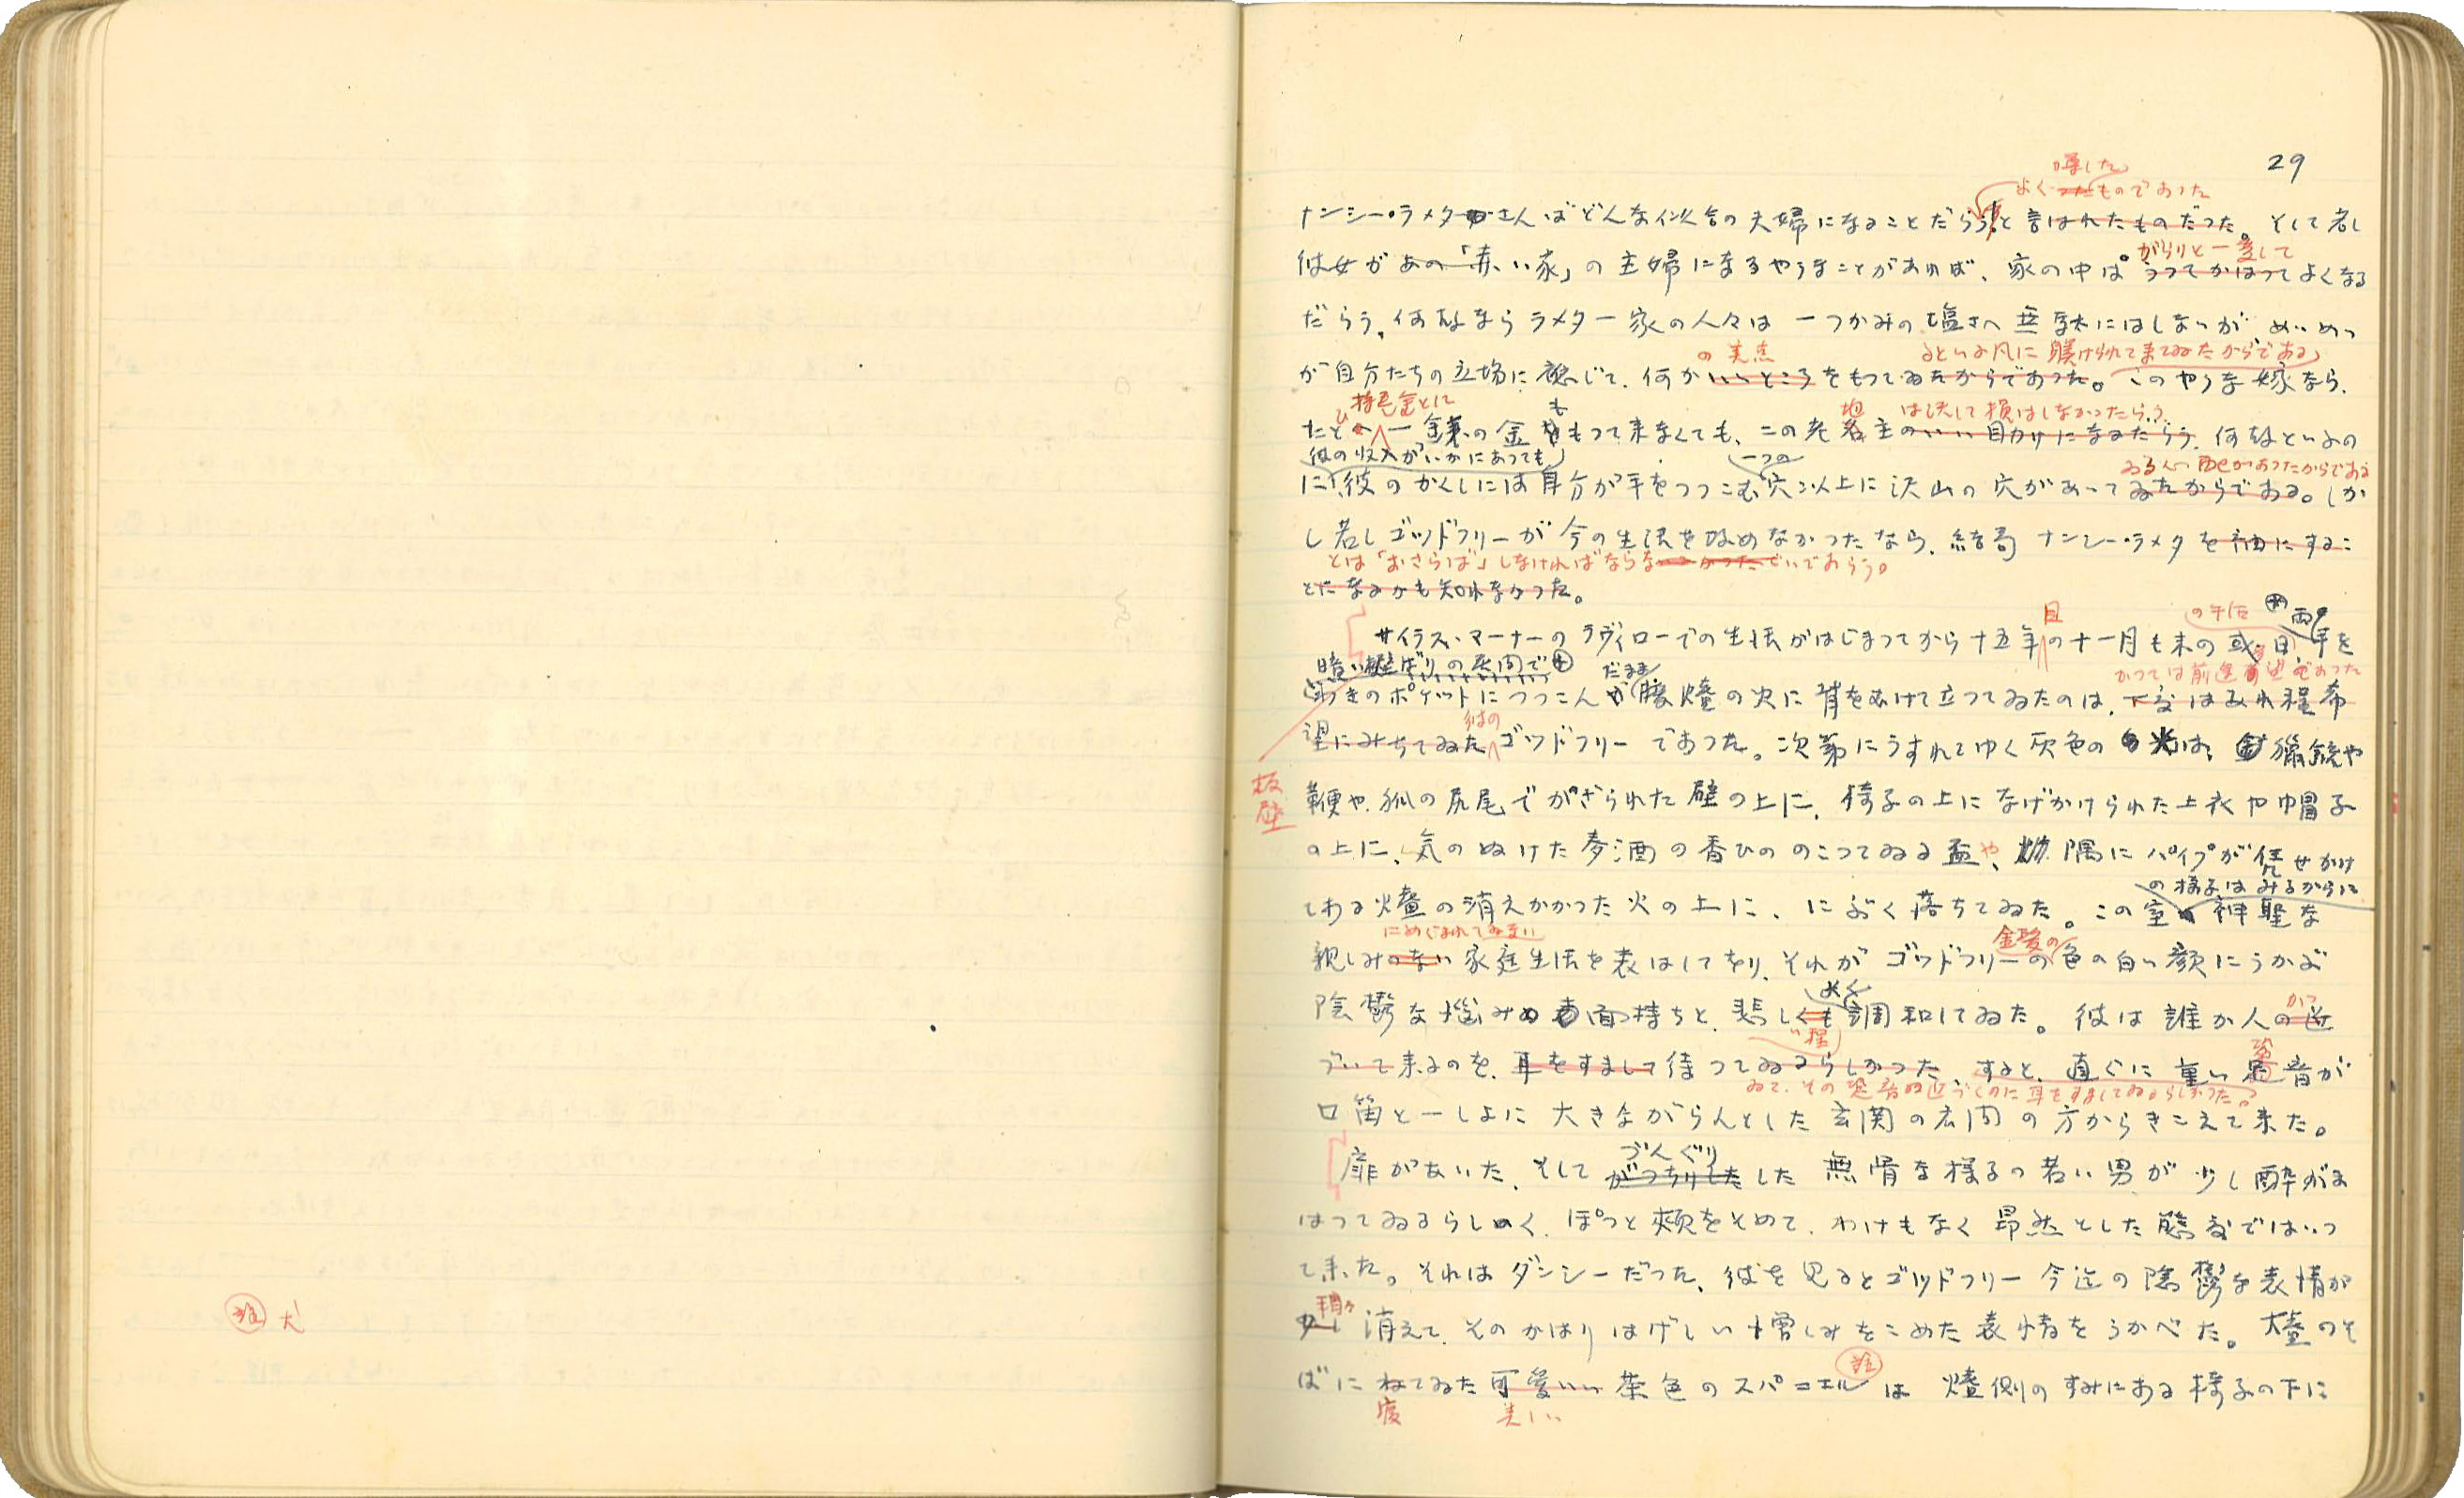 29
噂した
よくつたものであつた
ナンシー・ラメターさんはどんな似合の夫婦になることだらう!と言はれたものだつた。そして若し
がらりと一変して
彼女があの「赤い家」の主婦になるやうなことがあれば、家の中はうつてかはつてよくなる
だらう、何故ならラメター家の人々は一つかみの塩さへ無駄にはしないが、めいめい
の美点 るといふ風に躾けられて来てゐたからである
が自分たちの立場に応じて、何かいいところをもつてゐたからであつた。このやうな嫁なら、
ひ 持参金とに も 地 は決して損はしなかつたらう
たとへ一銭の金をもつて来なくても、この老名主のいい助けになるだらう。何故といふの
彼の収入がいかにあつても 一つの ゐる心配があつたからである
に彼のかくしには自分が手をつつこむ穴以上に沢山の穴があつてゐたからである。しか
し若しゴッドフリーが今の生活を改めなかつたなら、結局ナンシー・ラメタを袖にするこ
とは「おさらば」しなければならないであらう。
とになるかも知れなかつた。
目 の午后 両
サイラス・マーナーのラヴィローでの生活がはじまつてから十五年の十一月も末の或る日、手を
暗い壁ばりの居間で だまま かつては前途有望であつた
わきのポケットにつつこんが、煖爐の火に背をむけて立つてゐたのは、一度はあれ程希
彼の
望にみちてゐたゴッドフリーであつた。次第にうすれてゆく灰色の光は、猟銃や
板壁
鞭や、狐の尻尾でかざられた壁の上に、椅子の上になげかけられた上衣や帽子
の上に、気のぬけた麦酒の香ひののこつてゐる盃や、隅にパイプが任せかけ
の様子はみるからに
てある爐の消えかかつた火の上に、にぶく落ちてゐた。この室神聖な
にめぐまれてゐない 金髪の
親しみのない家庭生活を表はしてをり、それがゴッドフリーの色の白い顔にうかぶ
よく かつ
陰鬱な悩みの面持ちと、悲しくも調和してゐた。彼は誰か人の近
程
づいて来るのを、耳をすまして待つてゐるらしかつた、すると、直ぐに重い足音が
ゐて、その跫音の近づくのに耳をすましてゐるらしかつた。
口笛と一しよに大きながらんとした玄関の広間の方からきこえて来た。
づんぐり
扉があいた、そしてがつちりしたした無骨な様子の若い男が少し酔がま
はつてゐるらしめく、ぽつと頬をそめて、わけもなく昂然とした態度ではいつ
て来た。それはダンシーだつた、彼を見るとゴッドフリー今迄の陰鬱な表情が
稍々
少し消えて、そのかはりはげしい憎しみをこめた表情をうかべた。爐のそ
註
ばにねてゐた可愛いい茶色のスパニエルは爐側のすみにある椅子の下に
寝 美しい
註 犬